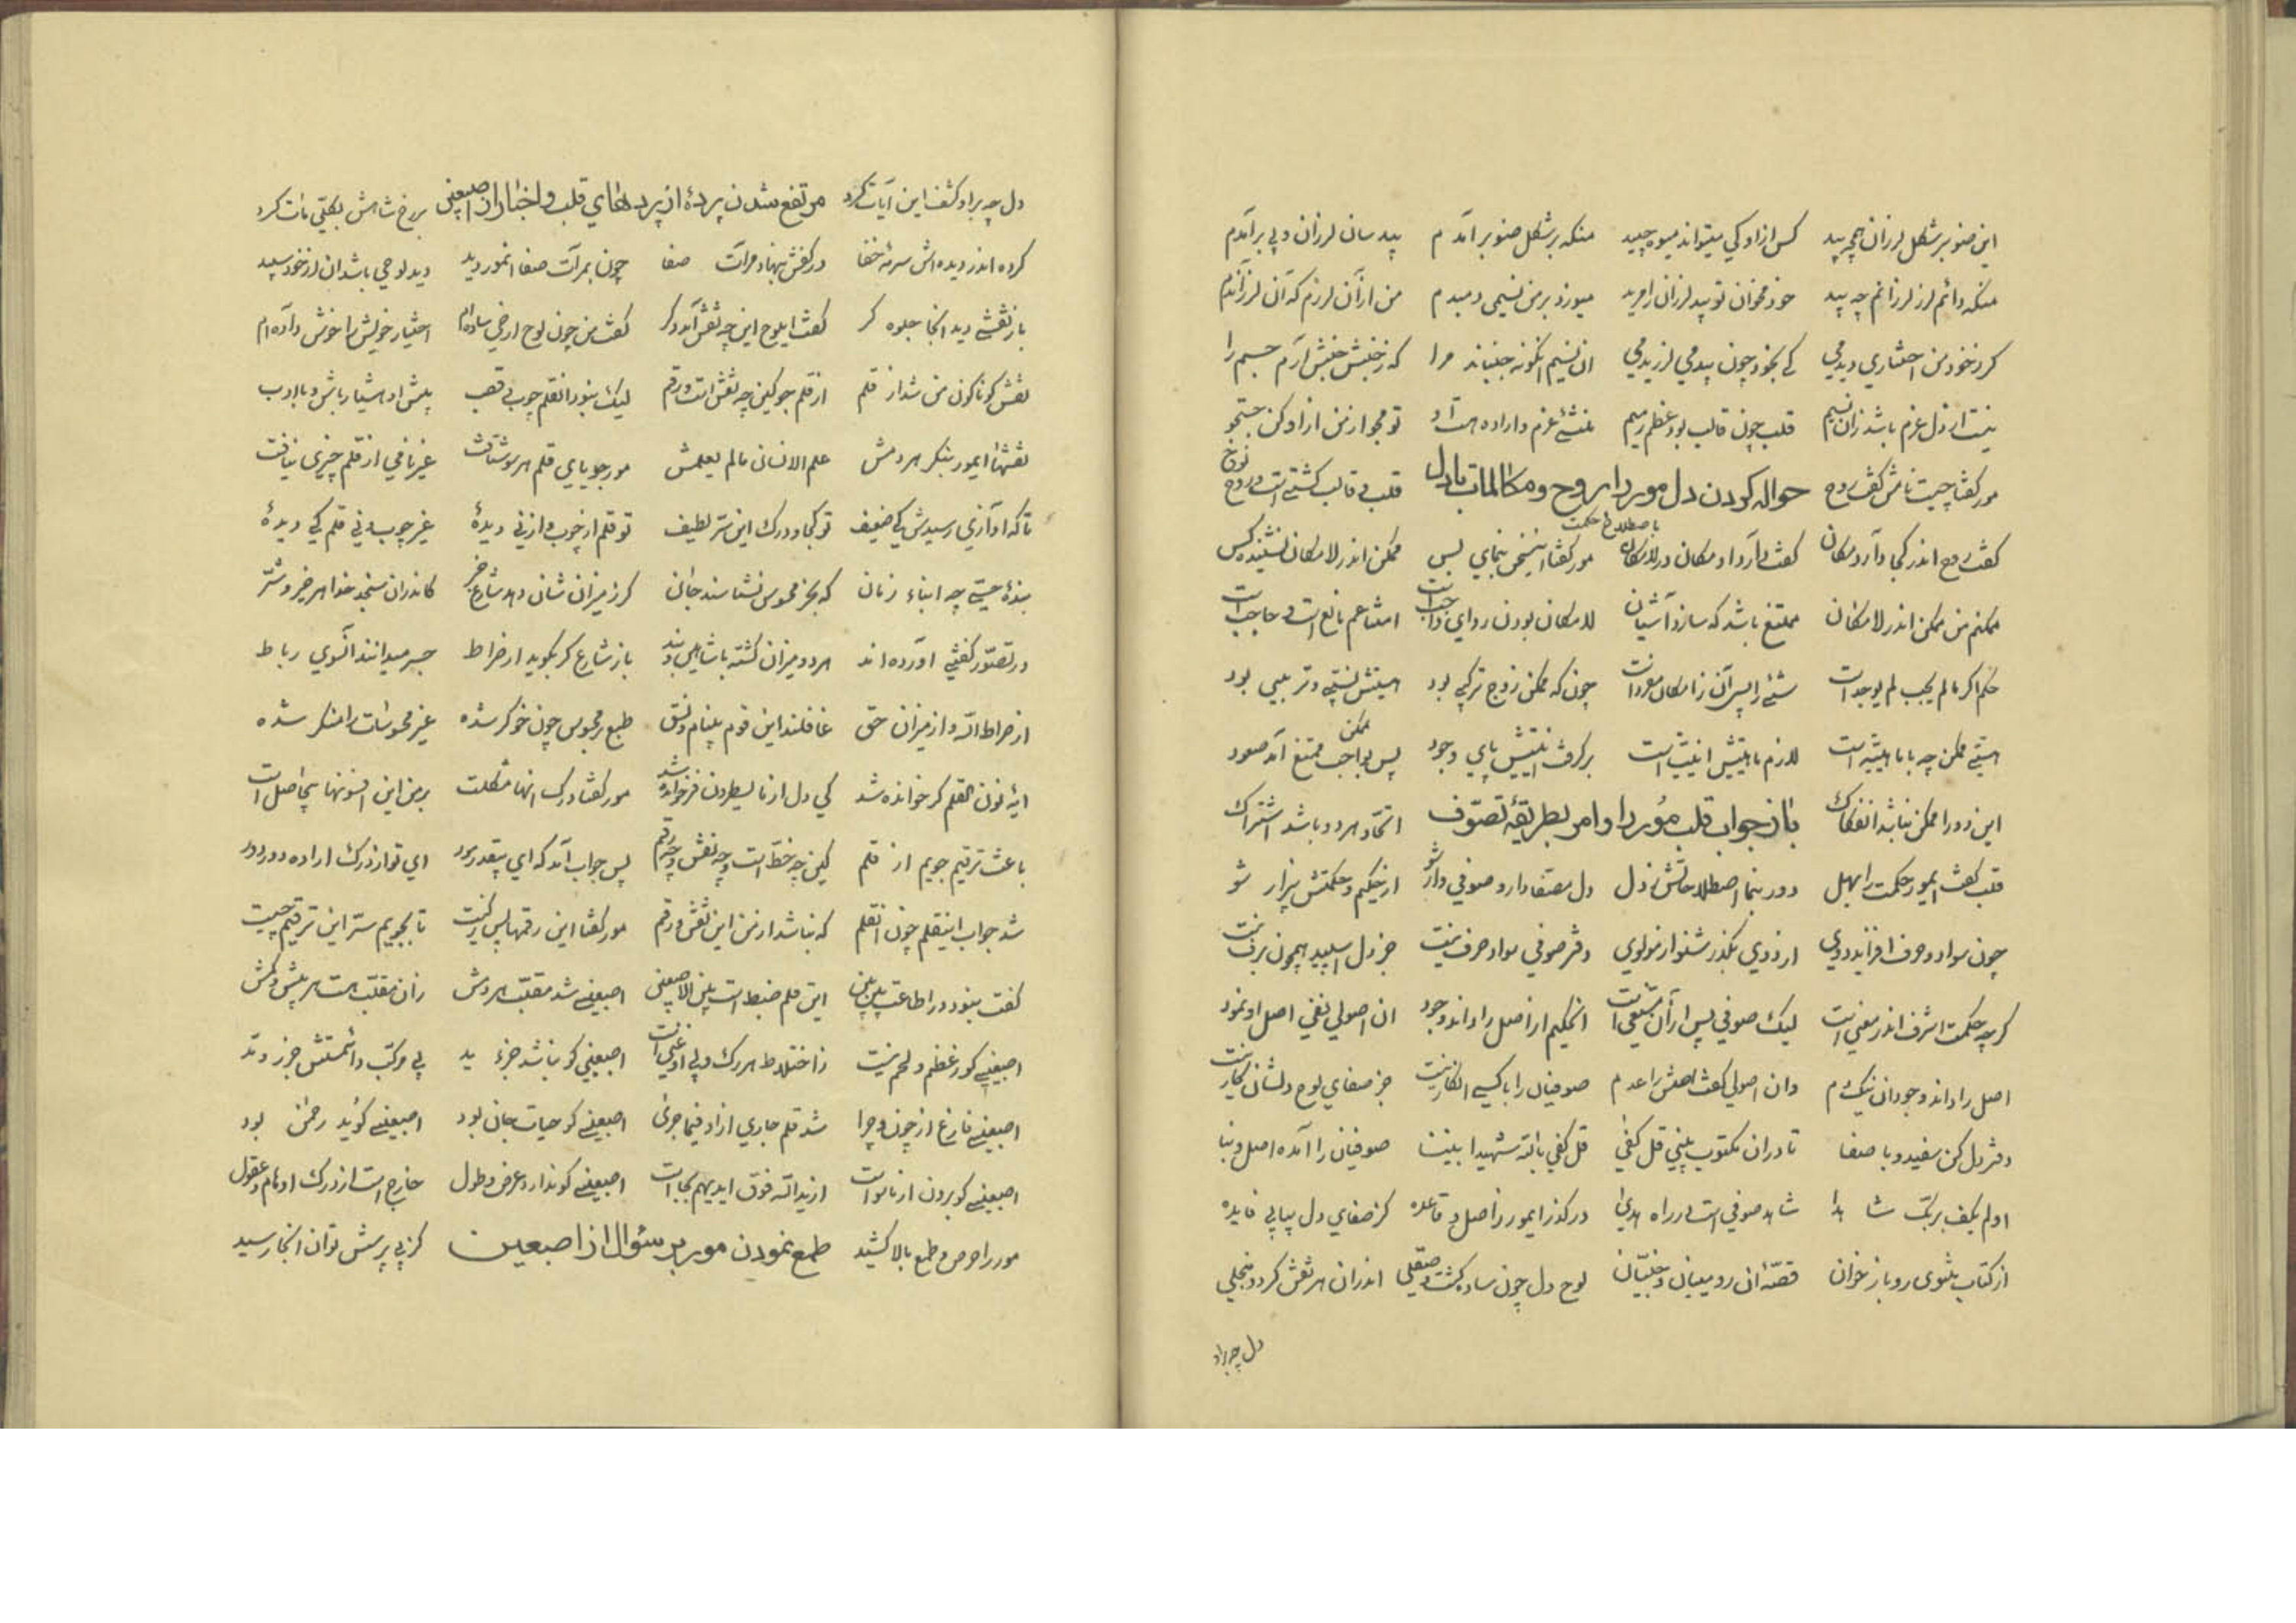 این صنوبر شکل لرزان همچو بید کس ازاو کی میتواند میوه چید منکه بر شکل صنوبر آمدم بید سان لرزان و بی بر آمدم
منکه دائم لرز لرزانم چه بید خود مخوان تو بید لرزان را مرید میوزد بر من نسیمی دمبدم من ازآن لرزم که آن لرزاندم
کر ز خود من اختیاری دیدمی کی بخود چون بید می لرزیدمی ان نسیم اینگونه جنباند مرا که ز جنبش جنبش آرم جسم را
نیست از دل عزم باشد زان نسیم قلب چون قالب بود عظم رمیم منشئ عزم و اراده هست او تو مجو از من از او کن جستجو
مور کفتا چیست نامش کفت روح حواله کردن دل مور را بروح و مکالمات با دل قلب و قالب کشتی است و روح نوح
کفت روح اندر کجا دارد مکان کفت دارد او مکان در لامکان باصطلاح حکمت مور کفتا اینسخن بیمای بس ممکن اندر لامکان ننشیند کس
ممکنم من ممکن اندر لامکان ممتنع باشد که سازد آشیان لامکان بودن ردای واجب است امتناعم مانع است و حاجب است
حکم اکر مالم یجب لم یوجد است شئ را پس آن ز امکان مفرد است چون که ممکن زوج ترکیبی بود هستیش نسبتی و ترتیبی بود
هستی ممکن چه با ماهیت است لازم ماهیتش انیت است بر کرفت انیتش پای وجود پس بواجب ممکن ممتنع آمد صعود
این دو را ممکن نباشد انفکاک باز جواب قلب مور را و امر بطریقه تصوف اتحاد هر دو باشد اشتراک
قلب کفت ایمور حکمت را بهل دور بنما اصطلاحاتش ز دل دل مصفا دار و صوفی وار شو از حکیم و حکمتش بیزار شو
چون سواد و حرف افزاید دوی از دوی بکذر شنو از مولوی دفتر صوفی سواد و حرف نیست جز دل اسپید همچون برف نیست
کرچه حکمت اشرف اندر معنی است لیک صوفی پس ازآن مستغنی است انحکیم از اصل راداند وجود ان اصولی نفی اصل او نمود
اصل راداند وجود ان نیک دم وان اصولی کفت اصلش را عدم صوفیان را با کسی انکار نیست جز صفای لوح دلشان کار نیست
دفتر دل کن سفید و با صفا تا دران مکتوب بینی قل کفی قل کفی بالله شهیدا بیننا صوفیان را آمده اصل و بنا
اولم یکف بربک شاهدا شاهد صوفی است در راه هدی در کذر ایمور ز اصل و قاعده کز صفای دل بیابی فایده
از کتاب مثنوی رو باز خوان قصه ان رومیان و چینیان لوح دل چون ساده کشت و صیقلی اندران هر نقش کردد منجلی
دل چه براو
دل چه براو کشف این آیات کرد مرتفع شدن پردهٔ از پردهای قلب و اخبار ان اصبعین بر رخ شاهش بکلی مات کرد
کرده اندر دیده اش سرمه خفا در کفش بنهاد مرآت صفا چون بمرآت صفا انمور دید دید لوحی باشد ان لرز خود سپید
باز نقشی دید انجا جلوه کر کفت ایلوح این چه نقش آمد دکر کفت من چون لوح ارضی ساده ام اختیار خویش را خوش داده ام
نقش کوناکون من شد از قلم از قلم جو کین چه نقش است و رقم لیک نبود انقلم چوب و قصب پیش او هشیار باش و با ادب
نقشها ایمور بنکر هر دمش علم الانسان مالم یعلمش مور جویای قلم هر سو شتافت غیر نافی از قلم چیزی نیافت
تاکه اوازی رسیدش کی ضعیف تو کجا و درک این سر لطیف تو قلم از خوب و از نی دیدهٔ غیر چوب و نی قلم کی دیدهٔ
بندهٔ حسی چه ابناء زمان که بجز محسوس نشناسند جان کر ز میزان نشان دهد شارع خبر کاندران سنجد خدا هر خیر و شر
در تصور کفتی اورده اند هر دو میزان کشته با شاهین و بند باز شارع کر بکوید از صراط جسر میدانند انسوی رباط
از صراط الله و از میزان حق غافلند این قوم بینام و نسق طبع محبوس چون خوکر شده غیر محسوسات را منکر شده
ایهٔ نون القلم کر خوانده شد کی دل از ما یسطرون فرخوانده شد مور کفتا درک انها مشکلست بر من این افسونها بیحاصل است
باعث ترقیم جویم از قلم کین چه خط است و چه نقش و چه رقم پس جواب آمد که ای بیقدر مور ای تو از درک اراده دور دور
شد جواب اینقلم چون انقلم که نباشد از من این نقش و رقم مور کفتا این رقمها پس ز کیست تا بجویم سر این ترقیم چیست
کفت نبود در اطاعت بین بین این قلم ضبط است بین الاصبعین اصبعینی شد مقلب هر دمش زان مقلب هست هر بیش و کمش
اصبعینی کو ز عظم و لحم نیست ز اختلاط هر رک و پی او غنی است اصبعینی کو نباشد جزء ید پی مرکب دائمستش جزر و مد
اصبعینی فارغ از چون و چرا شد قلم جاری از او فیما جری اصبعینی کو حیات جان بود اصبعینی کو ید رحمن بود
اصبعینی کو برون از ماسواست از یدالله فوق ایدیهم بجاست اصبعینی کو ندارد عرض و طول خارج است از درک اوهام و عقول
مور را حرص و طمع بالا کشید طمع نمودن مور بر سئوال از اصبعین کز پی پرسش توان انجا رسید